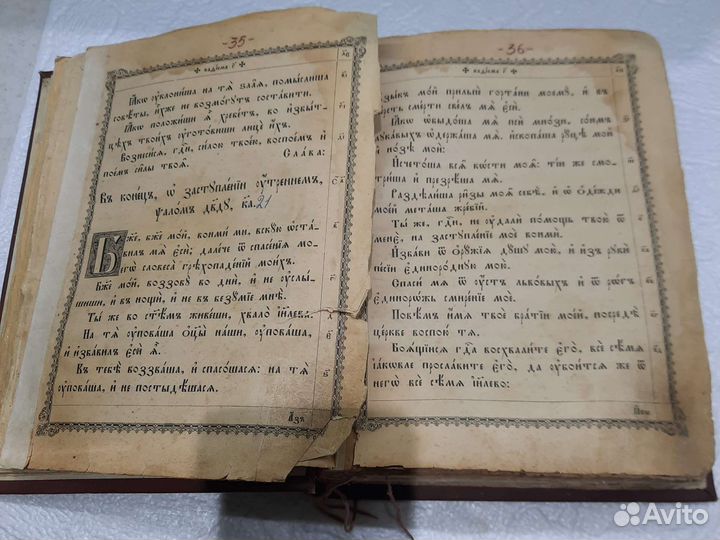 -35-
✠ каѳісма г҃ ✠
Ꙗ҆́кѡ ᲂу҆клони́ша на тѧ̀ зла̑ѧ, помы́слиша
совѣ́ты, и҆̀хже не возмо́гꙋтъ соста́вити.
Ꙗ҆́кѡ положи́ши ѧ҆̀ хребе́тъ, во и҆збы́т-
цѣхъ твои́хъ ᲂу҆гото́виши лицѐ и҆́хъ.
Вознеси́сѧ, гдⷭ҇и, си́лою твое́ю, воспое́мъ и҆
пое́мъ си̑лы твоѧ̑. Сла́ва:
Въ коне́цъ, ѡ҆ застꙋпле́нїи ᲂу҆́треннемъ,
ѱало́мъ дв҃дꙋ, к҃а. 21
Бж҃е, бж҃е мо́й, вонми́ ми, вскꙋ́ю ѡ҆ста́-
вилъ мѧ̀ є҆сѝ; дале́че ѿ спасе́нїѧ мо-
егѡ̀ словеса̀ грѣхопаде́нїй мои́хъ.
Бж҃е мо́й, воззовꙋ̀ во днѝ, и҆ не ᲂу҆слы́-
шиши, и҆ въ нощѝ, и҆ не въ безꙋ́мїе мнѣ̀.
Ты́ же во ст҃ѣ́мъ живе́ши, хвало̀ і҆и҃лева:
На тѧ̀ ᲂу҆пова́ша ѻ҆ц҃ы̀ на́ши, ᲂу҆пова́ша,
и҆ и҆зба́вилъ є҆сѝ ѧ҆̀.
Къ тебѣ̀ воззва́ша, и҆ спасо́шасѧ: на тѧ̀
ᲂу҆пова́ша, и҆ не постыдѣ́шасѧ.
А҆́зъ
-36-
✠ каѳісма г҃ ✠
ѧ҆зы́къ мо́й прильпѐ горта́ни моемꙋ̀, и҆ въ
пе́рсть сме́рти све́лъ мѧ̀ є҆сѝ.
Ꙗ҆́кѡ ѡ҆быдо́ша мѧ̀ псѝ мно́зи, со́нмъ
лꙋка́выхъ ѡ҆держа́ша мѧ̀. и҆скопа́ша рꙋ́цѣ моѝ
и҆ но́зѣ моѝ.
И҆счето́ша всѧ̑ кѡ́сти моѧ̑: ті́и же смо-
три́ша и҆ презрѣ́ша мѧ̀.
Раздѣли́ша ри̑зы моѧ̑ себѣ̀, и҆ ѡ҆ ѻ҆де́жди
мое́й мета́ша жре́бїй.
Ты́ же, гдⷭ҇и, не ᲂу҆далѝ по́мощь твою̀ ѿ
менє̀, на застꙋпле́нїе моѐ вонмѝ.
И҆зба́ви ѿ ѻ҆рꙋ́жїѧ дꙋ́шꙋ мою̀, и҆ и҆з̾ рꙋкѝ
пе́сїи є҆диноро́днꙋю мою̀.
Спаси́ мѧ ѿ ᲂу҆́стъ льво́выхъ, и҆ ѿ рѡ́гъ
є҆диноро́жь смире́нїе моѐ.
Повѣ́мъ и҆́мѧ твоѐ бра́тїи мое́й, посредѣ̀
цр҃кве воспою́ тѧ.
Боѧ́щїисѧ гдⷭ҇а, восхвали́те є҆го̀, всѐ сѣ́мѧ
і҆а́кѡвле, просла́вите є҆го̀, да ᲂу҆бои́тсѧ же ѿ
негѡ̀ всѐ сѣ́мѧ і҆и҃лево:
Ꙗ҆́кѡ
Avito